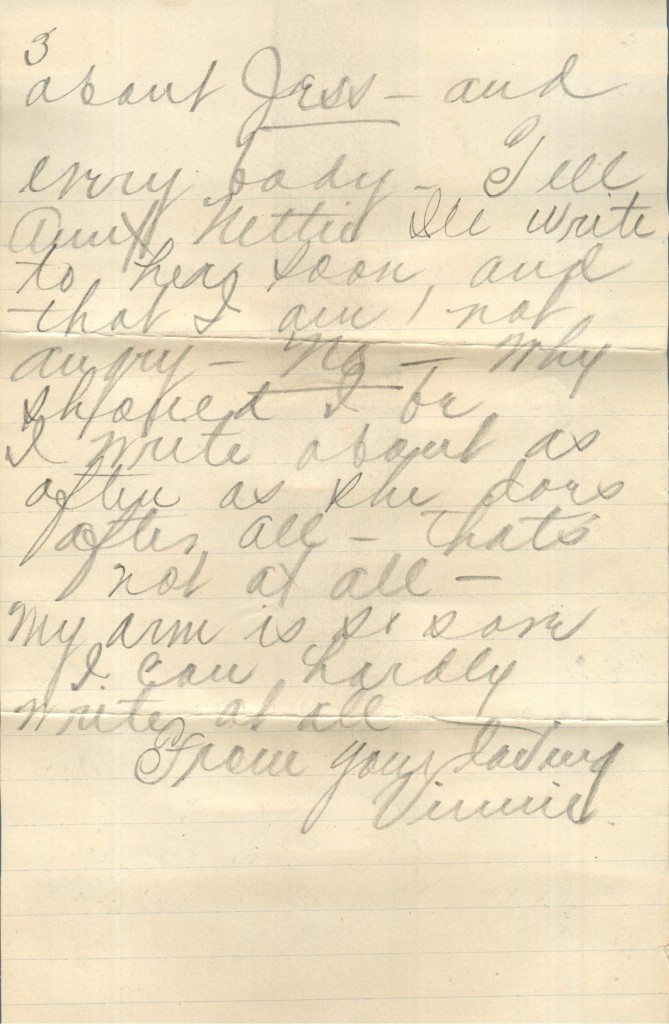 3
about Jess – and
every body – Tell
Aunt Nettie I'll write
to her soon, and
that I am not
angry – No – Why
should I be
I write about as
often as she does
after all – thats
not at all –
My arm is so sore
I can hardly
write at all
From your loving
Vinnie